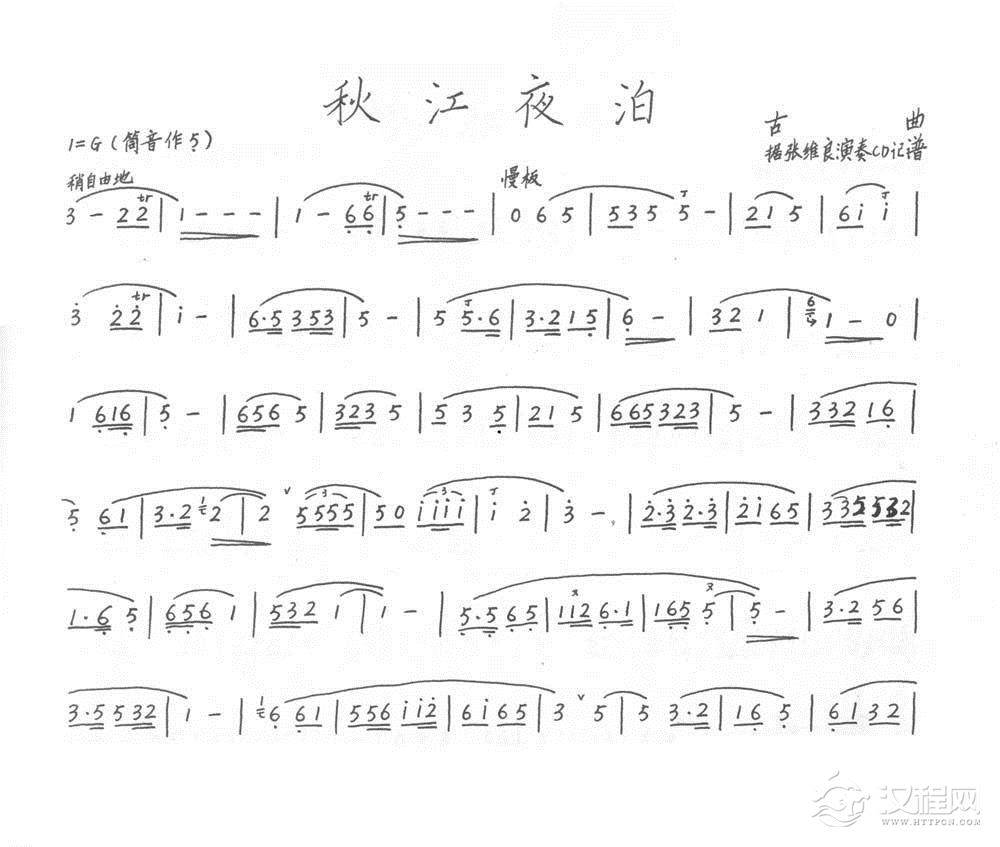 秋江夜泊
1=G（筒音作5̣）
古曲
据张维良演奏CD记谱
稍自由地
慢板
3 - 2 2 | 1 - - - | 1 - 6̣ 6̣ | 5̣ - - - | 0 6 5 | 5 3 5 5 - | 2 1 5 | 6 i i |
3̇ 2̇ 2̇ | i - | 6·5 3 5 3 | 5 - | 5 5·6 | 3·2 1 5̣ | 6̣ - | 3 2 1 | 1 - 0 |
1 6̣ 1 6̣ | 5̣ - | 6 5 6 5 | 3 2 3 5 | 5 3 5̣ | 2 1 5̣ | 6 6 5 3 2 3 | 5 - | 3 3 2 1 6̣ |
5̣ 6̣ 1 | 3·2 2 | 2 5 5 5 5 | 5 0 i i i i | i 2̇ | 3̇ - | 2̇·3̇ 2̇·3̇ | 2̇ i 6 5 | 3 3 2 5 5 3 2 |
1·6̣ 5̣ | 6̣ 5̣ 6̣ 1 | 5 3 2 1 | 1 - | 5̣·5̣ 6̣ 5̣ | 1 1 2 6̣·1 | 1 6̣ 5̣ 5̣ | 5̣ - | 3·2 5 6 |
3·5 5 3 2 | 1 - | 6̣ 6̣ 1 | 5 5 6 i i 2̇ | 6 i 6 5 | 3 5 | 5 3·2 | 1 6̣ 5̣ | 6̣ 1 3 2 |
汉程网
WWW.HTTPCN.COM